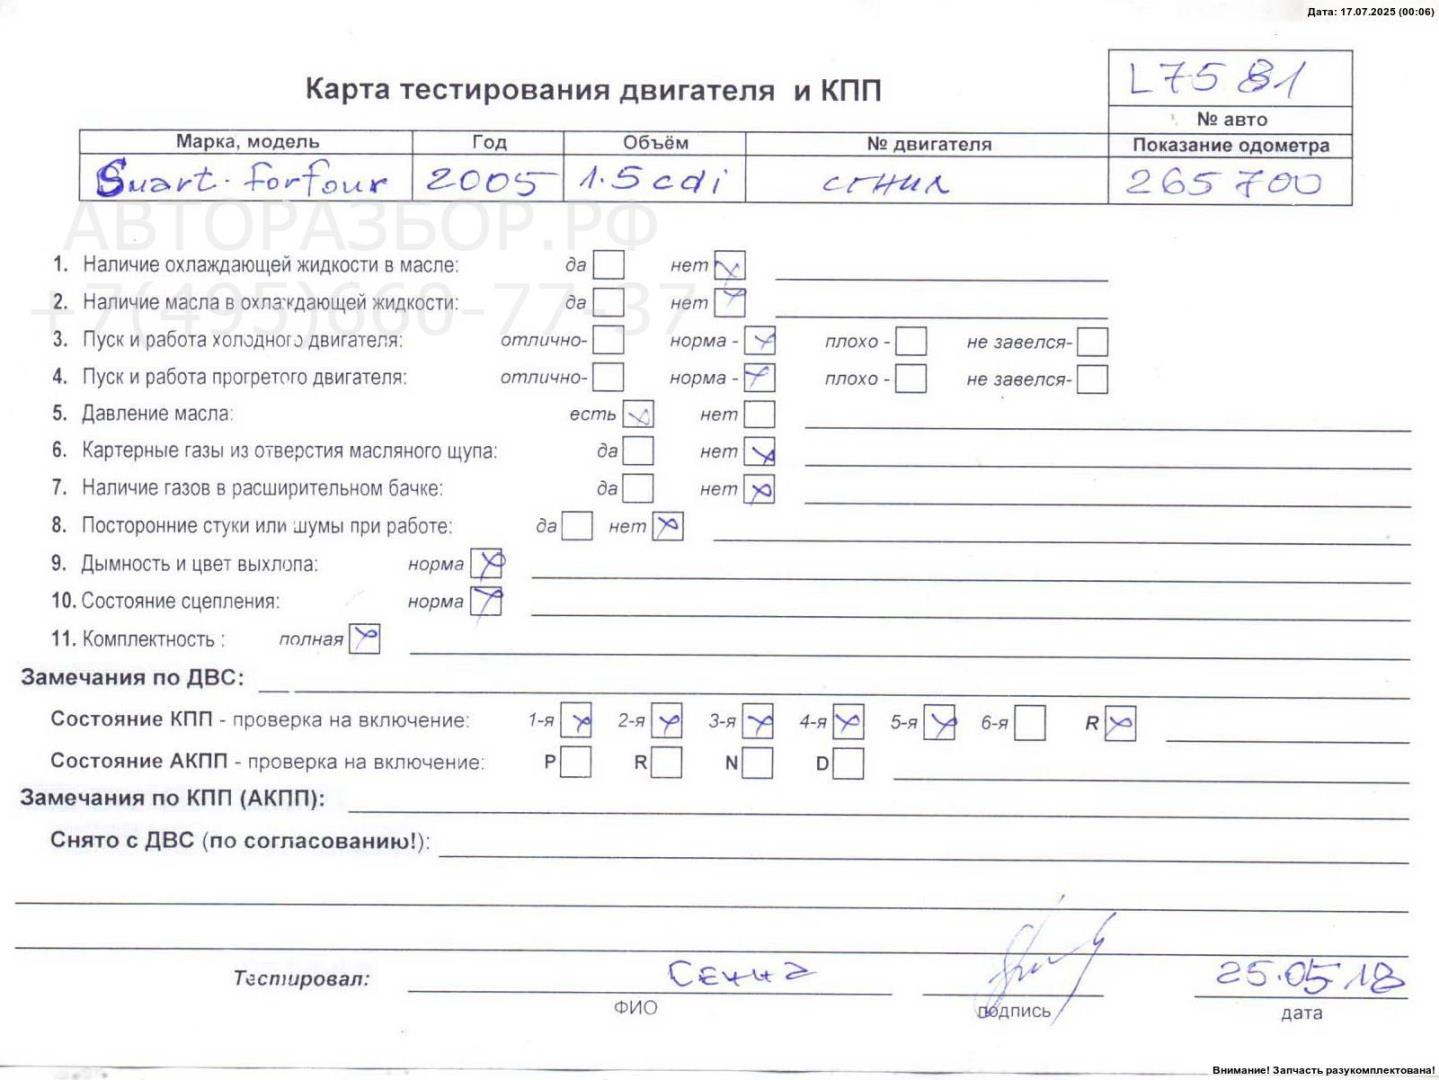 Дата: 17.07.2025 (00:06)
L7581
Карта тестирования двигателя и КПП
№ авто
Марка, модель Год Объём № двигателя Показание одометра
Smart forfour 2005 1.5 cdi сгнил 265700
АВТОРАЗБОР.РФ
1. Наличие охлаждающей жидкости в масле: да нет
+7(495)660-77-37
2. Наличие масла в охлаждающей жидкости: да нет
3. Пуск и работа холодного двигателя: отлично- норма - плохо - не завелся-
4. Пуск и работа прогретого двигателя: отлично- норма - плохо - не завелся-
5. Давление масла: есть нет
6. Картерные газы из отверстия масляного щупа: да нет
7. Наличие газов в расширительном бачке: да нет
8. Посторонние стуки или шумы при работе: да нет
9. Дымность и цвет выхлопа: норма
10. Состояние сцепления: норма
11. Комплектность : полная
Замечания по ДВС:
Состояние КПП - проверка на включение: 1-я 2-я 3-я 4-я 5-я 6-я R
Состояние АКПП - проверка на включение: P R N D
Замечания по КПП (АКПП):
Снято с ДВС (по согласованию!):
Тестировал: 25.05.18
ФИО подпись дата
Внимание! Запчасть разукомплектована!